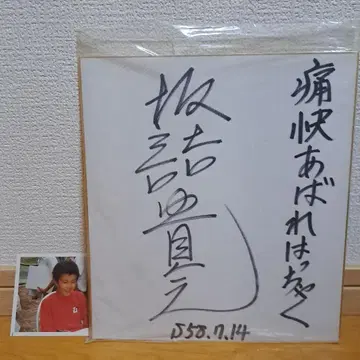 痛快あばれはっちゃく
坂詰貴之
S58.7.14